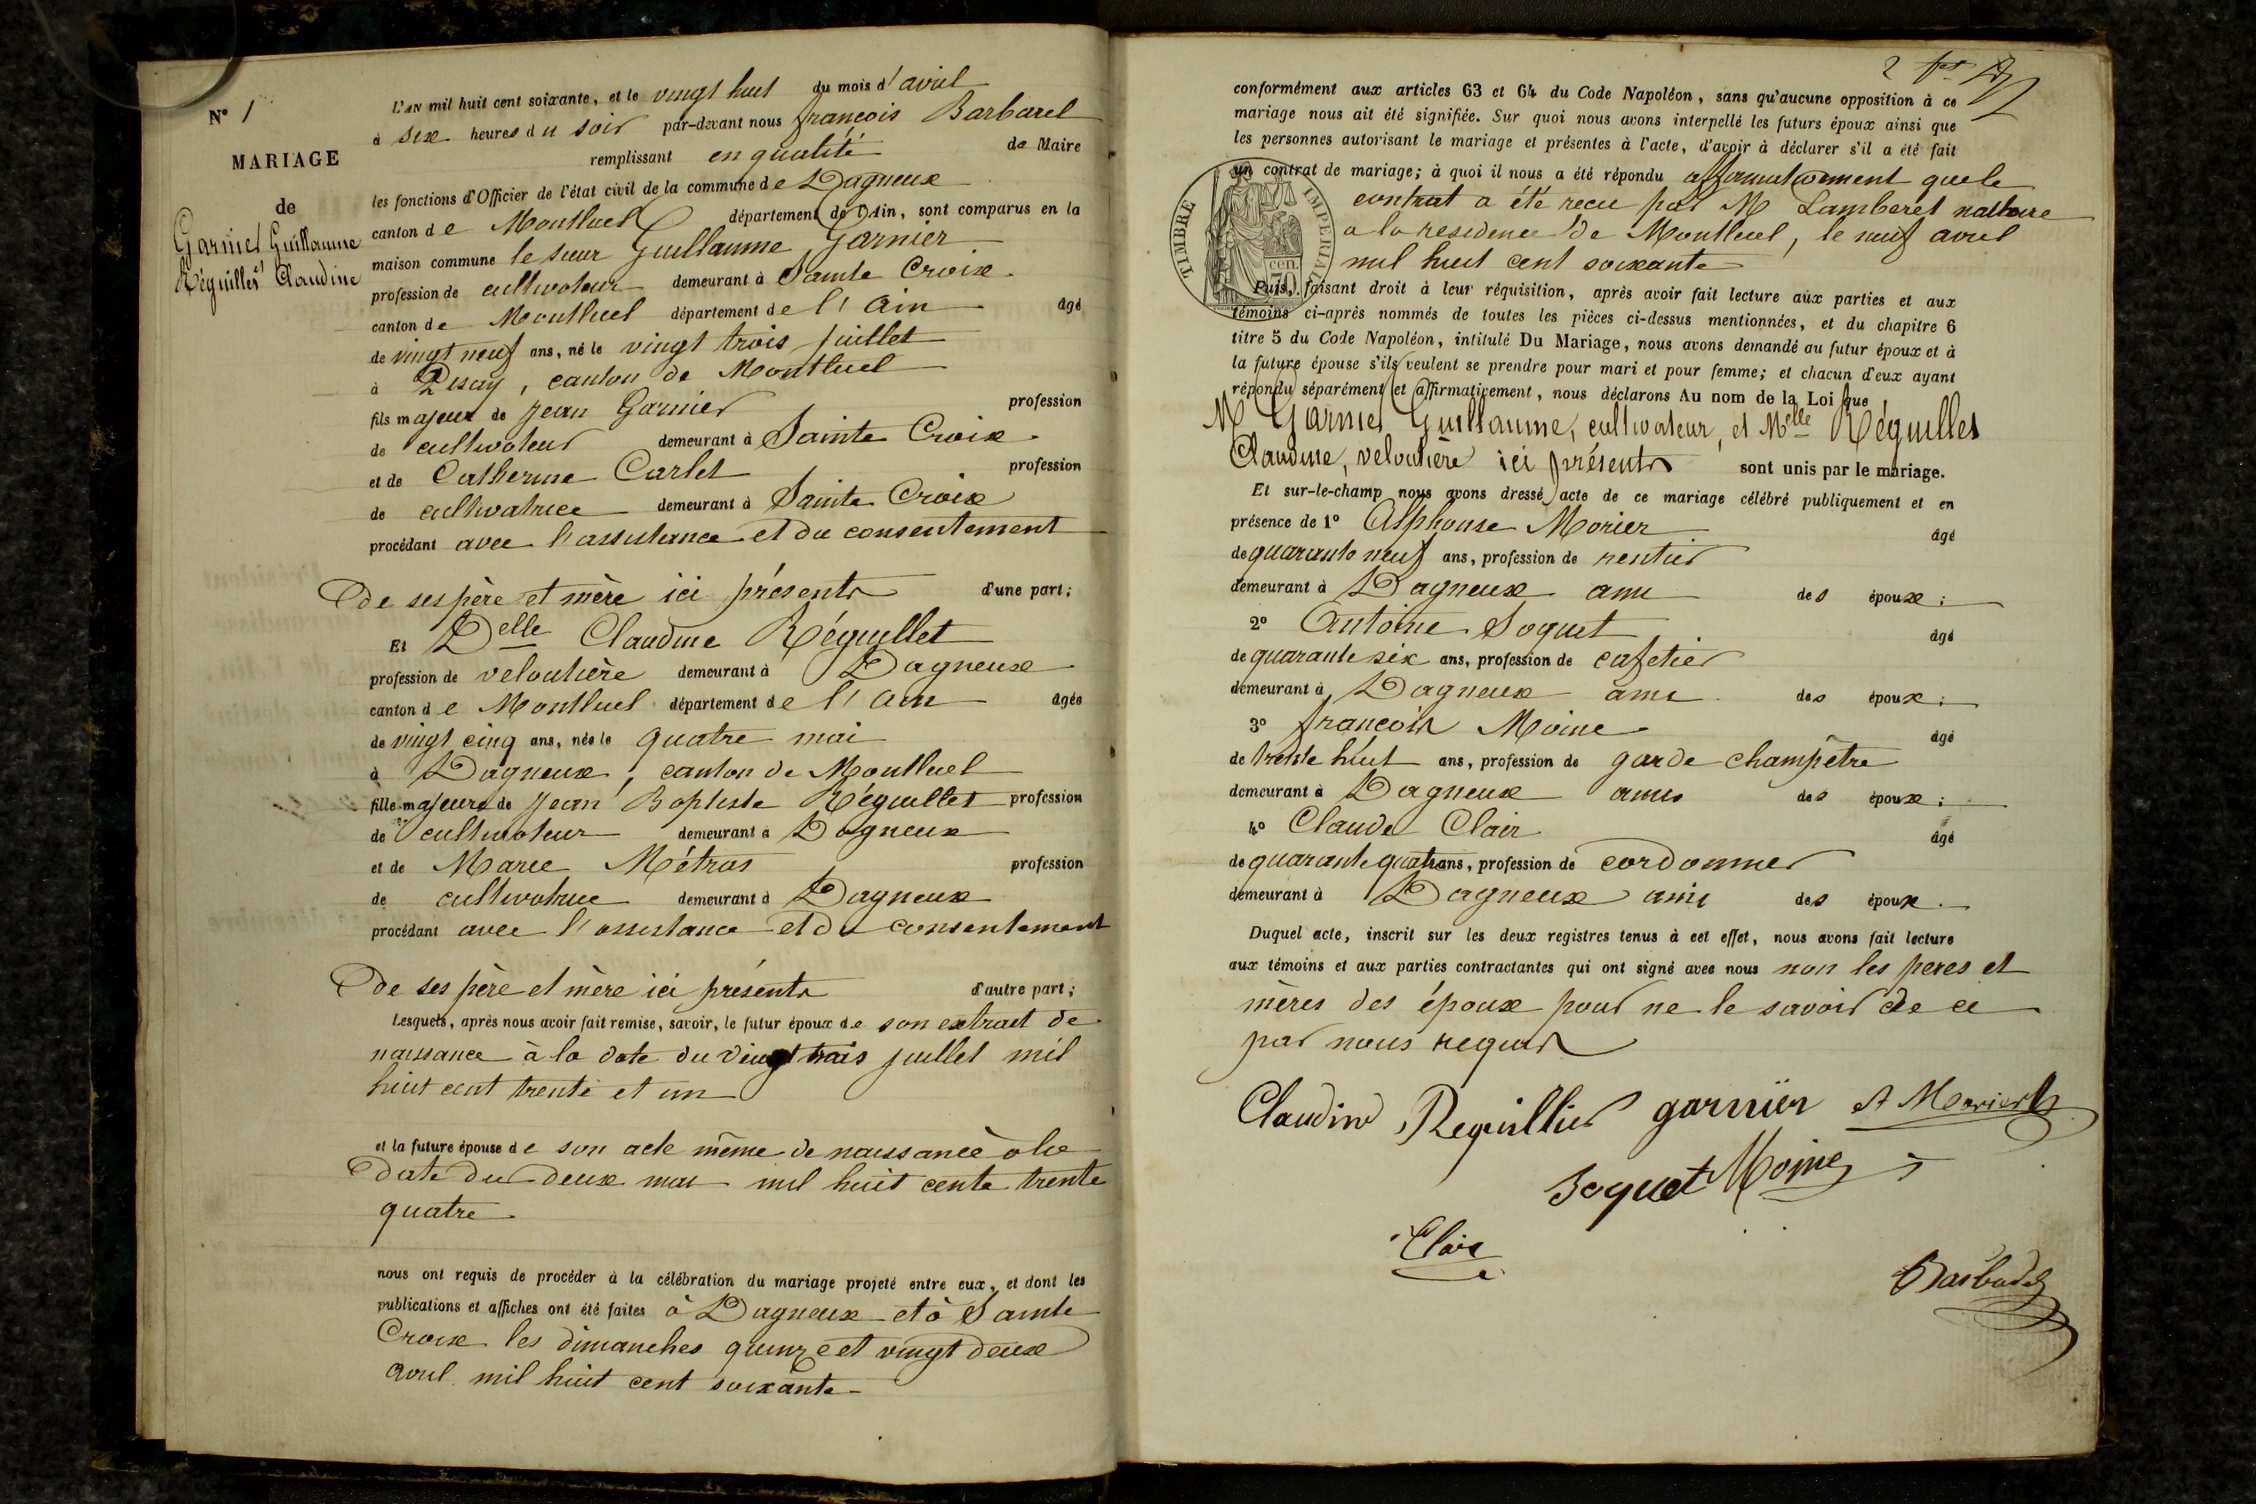 N° 1
MARIAGE
de
Garnier Guillaume
et
Réguillet Claudine
L'AN mil huit cent soixante, et le vingt huit du mois d'avril
à six heures du soir par-devant nous françois Barbarel
remplissant en qualité de Maire
les fonctions d'Officier de l'état civil de la commune de Dagneux
canton de Montluel département de l'Ain, sont comparus en la
maison commune le sieur Guillaume Garnier
profession de cultivateur demeurant à Sainte Croix
canton de Montluel département de l'Ain âgé
de vingt neuf ans, né le vingt trois juillet
à Pisay, canton de Montluel
fils majeur de Jean Garnier profession
de cultivateur demeurant à Sainte Croix
et de Catherine Carlet profession
de cultivatrice demeurant à Sainte Croix
procédant avec l'assistance et du consentement
de ses père et mère ici présents d'une part;
Et Delle Claudine Réguillet
profession de veloutière demeurant à Dagneux
canton de Montluel département de l'Ain âgée
de vingt cinq ans, née le quatre mai
à Dagneux, canton de Montluel
fille majeure de Jean Baptiste Réguillet profession
de cultivateur demeurant à Dagneux
et de Marie Métras profession
de cultivatrice demeurant à Dagneux
procédant avec l'assistance et du consentement
de ses père et mère ici présents d'autre part;
Lesquels, après nous avoir fait remise, savoir, le futur époux de son extrait de
naissance à la date du vingt trois juillet mil
huit cent trente et un
et la future épouse de son acte même de naissance à la
date du deux mai mil huit cente trente
quatre
nous ont requis de procéder à la célébration du mariage projeté entre eux, et dont les
publications et affiches ont été faites à Dagneux et à Sainte
Croix les dimanches quinze et vingt deux
avril mil huit cent soixante
2
conformément aux articles 63 et 64 du Code Napoléon, sans qu'aucune opposition à ce
mariage nous ait été signifiée. Sur quoi nous avons interpellé les futurs époux ainsi que
les personnes autorisant le mariage et présentes à l'acte, d'avoir à déclarer s'il a été fait
un contrat de mariage; à quoi il nous a été répondu affirmativement que le
contrat a été recu par M Lamberet nottaire
a la residence de Montluel, le neuf avril
mil huit cent soixante
TIMBRE IMPERIAL
70 cen.
Puis, faisant droit à leur réquisition, après avoir fait lecture aux parties et aux
témoins ci-après nommés de toutes les pièces ci-dessus mentionnées, et du chapitre 6
titre 5 du Code Napoléon, intitulé Du Mariage, nous avons demandé au futur époux et à
la future épouse s'ils veulent se prendre pour mari et pour femme; et chacun d'eux ayant
répondu séparément et affirmativement, nous déclarons Au nom de la Loi que
Mr Garnier Guillaume, cultivateur, et Melle Réguillet
Claudine, veloutière ici présents sont unis par le mariage.
Et sur-le-champ nous avons dressé acte de ce mariage célébré publiquement et en
présence de 1° Alphonse Morier âgé
de quarante neuf ans, profession de rentier
demeurant à Dagneux ami des époux;
2° Antoine Soquet âgé
de quarante six ans, profession de cafetier
demeurant à Dagneux ami des époux;
3° françois Moine âgé
de trente huit ans, profession de garde champêtre
demeurant à Dagneux amis des époux;
4° Claude Clair âgé
de quarante quatre ans, profession de cordonnier
demeurant à Dagneux ami des époux.
Duquel acte, inscrit sur les deux registres tenus à cet effet, nous avons fait lecture
aux témoins et aux parties contractantes qui ont signé avec nous non les peres et
mères des époux pour ne le savoir de ce
par nous requis
Claudine Reguillier garnier A Morier
Soquet Moine
Clair
Barbarel